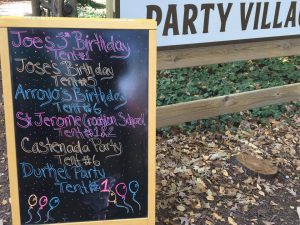 Joe's 3rd Birthday
Tent #1
Jose's Birthday
Tent #5
Arroyo's Birthday
Tent #6
St Jerome Croatian School
Tent #1&2
Castenada Party
Tent #6
Durhel Party
Tent #1
PARTY VILLA